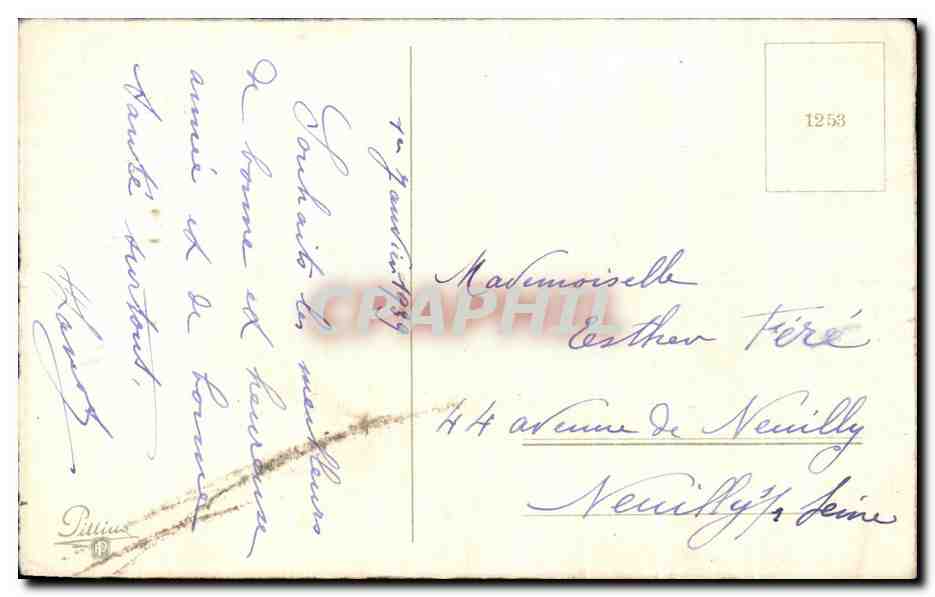 1er Janvier 1939
Souhaits les meilleurs
de bonne et heureuse
année et de bonne
santé surtout.
1253
Mademoiselle
Esther Féré
44 avenue de Neuilly
Neuilly s/ Seine
Pillius
CRAPHIL